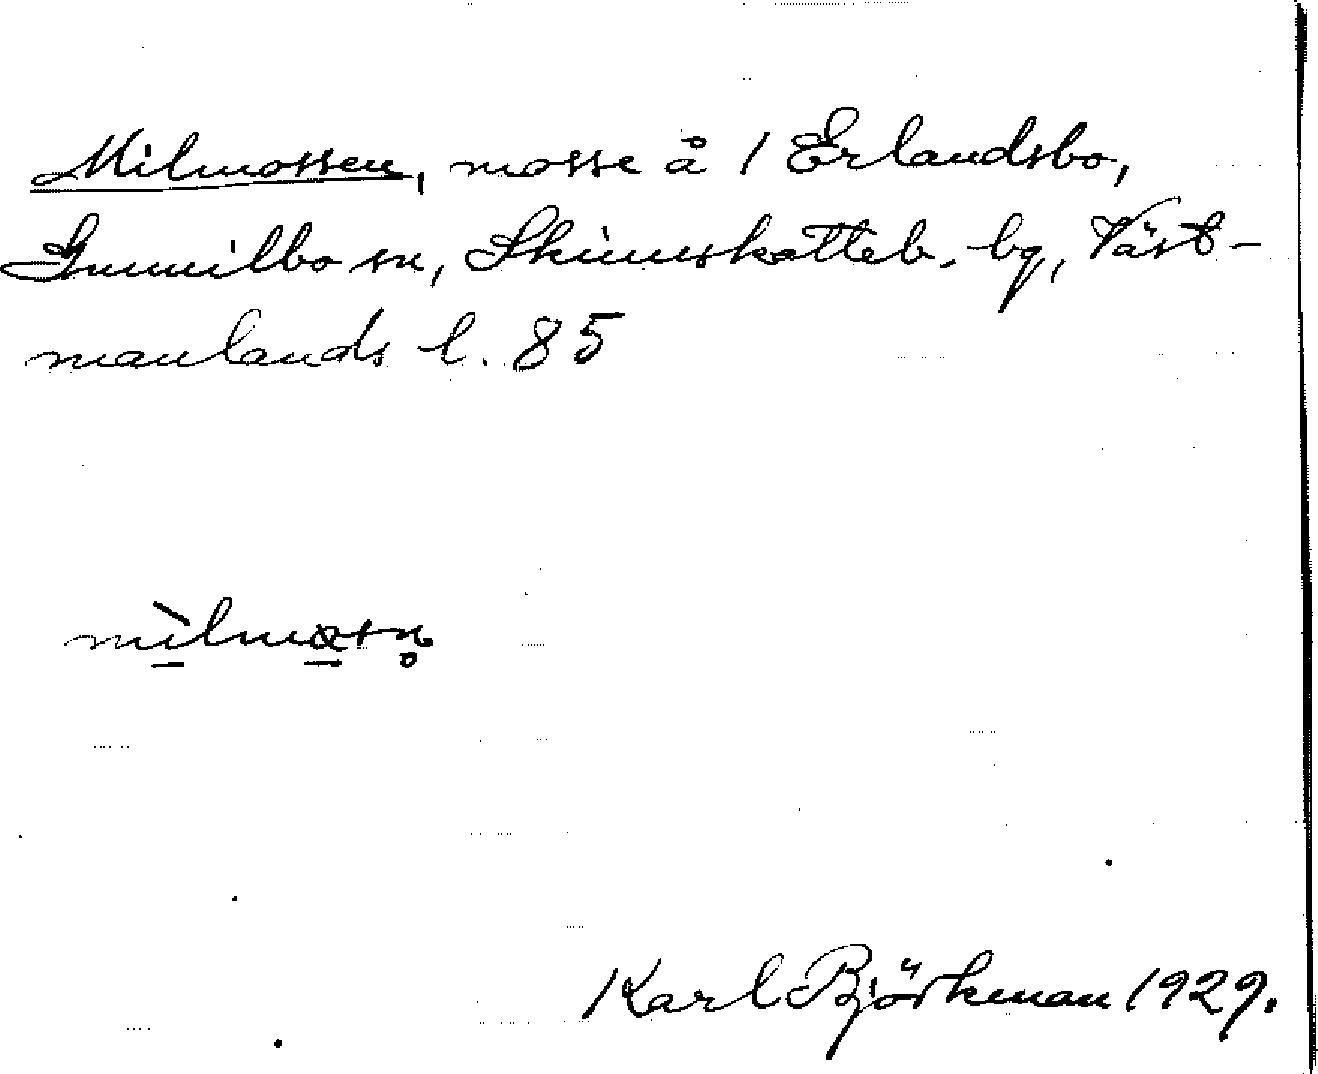 Milmossen, mosse å 1 Erlandsbo,
Gunnilbo sn, Skinnskatteb. bg, Väst-
manlands l. 85
mìlmåsn̥
Karl Björkman 1929.